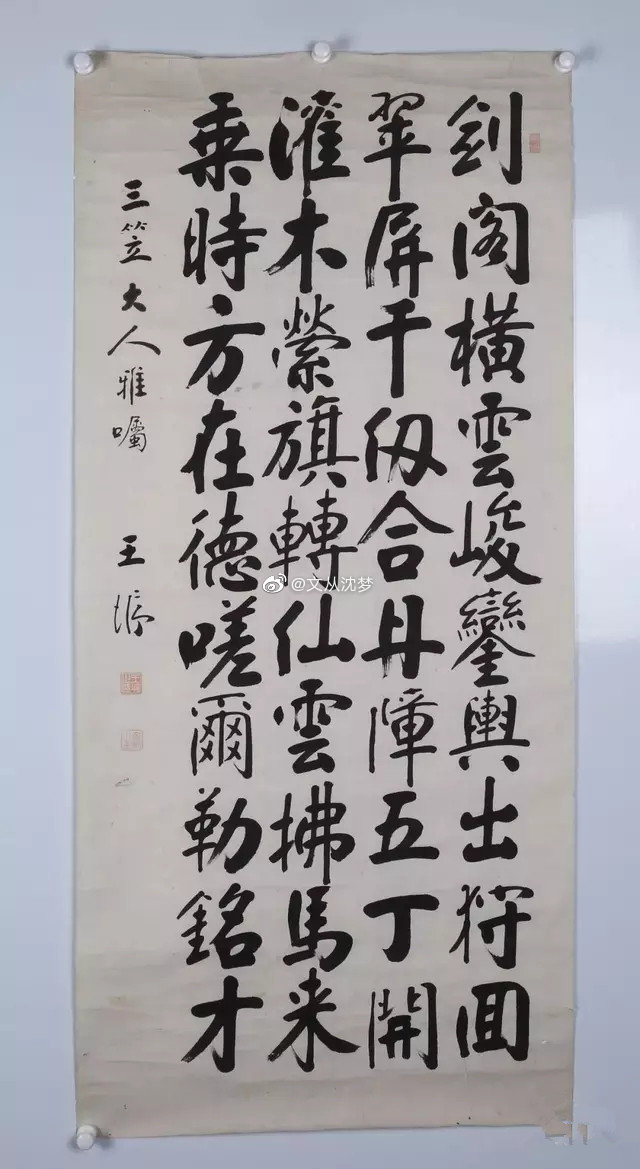 劍閣橫雲峻鑾輿出狩回
翠屏千仞合丹障五丁開
灌木縈旗轉仙雲拂馬来
乘時方在德嗟爾勒銘才
三笠大人雅囑
王垿
@文从沈梦